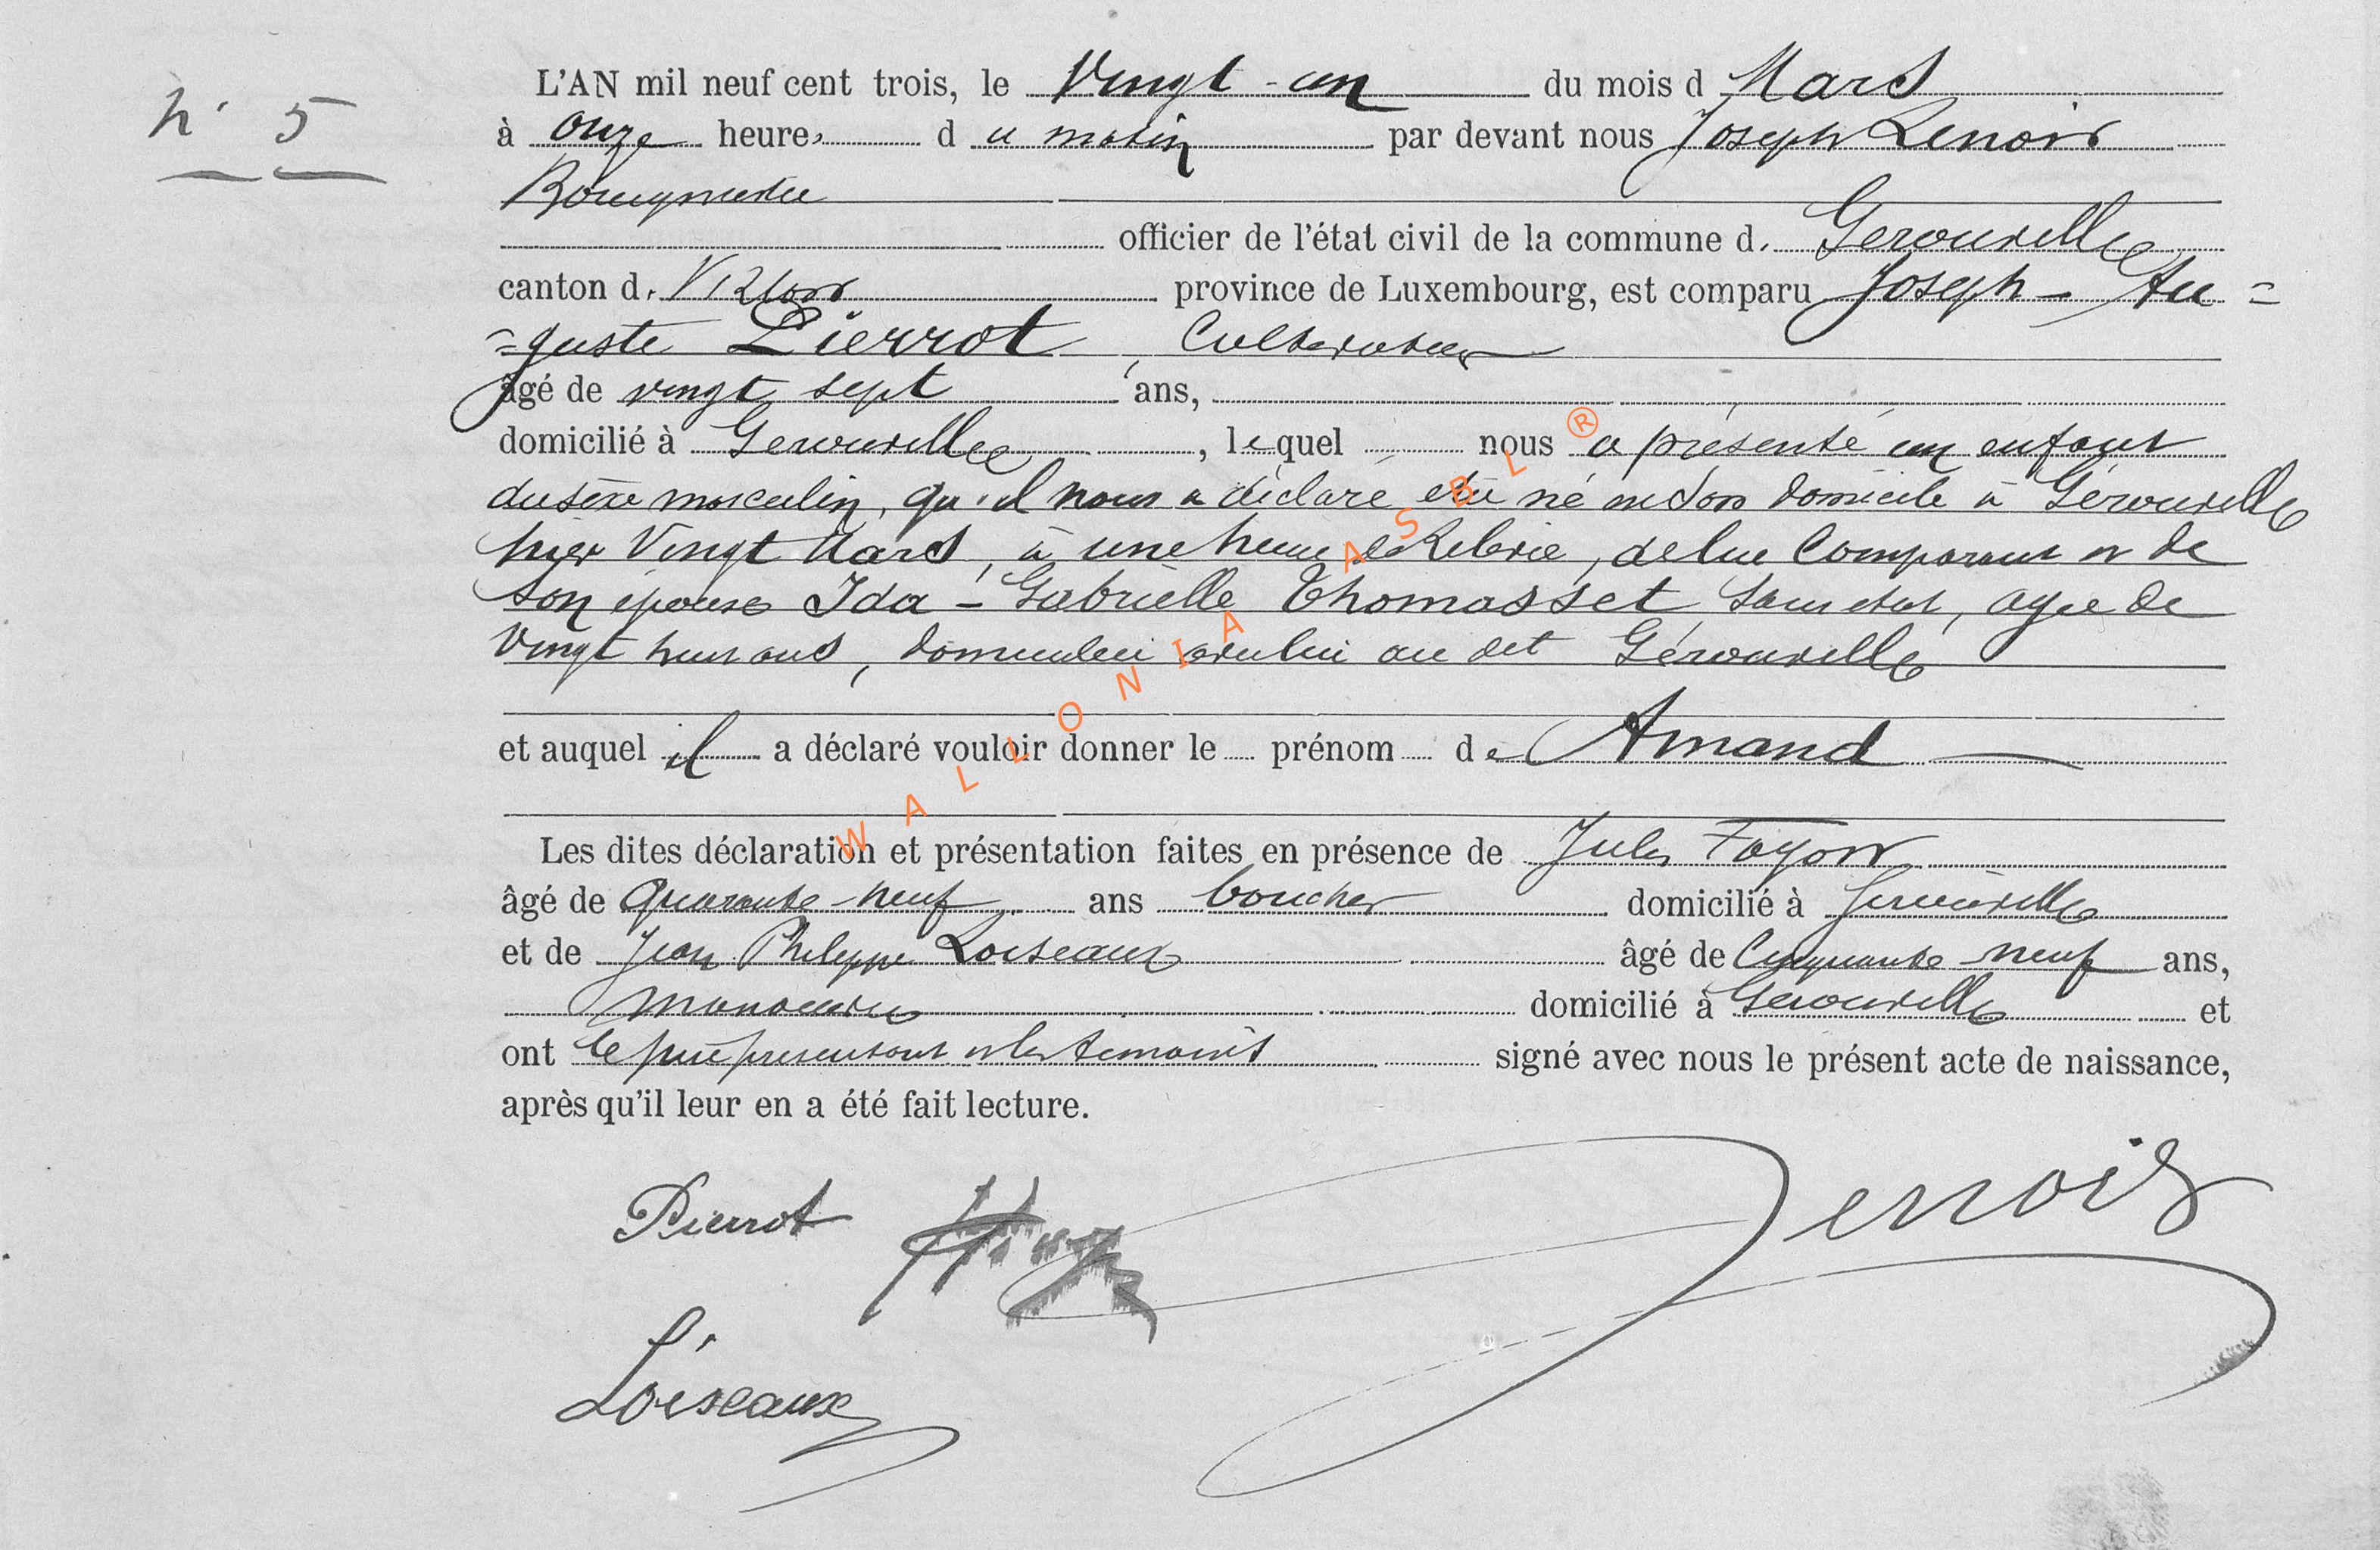 N° 5
L'AN mil neuf cent trois, le Vingt-un du mois d Mars
à onze heures du matin par devant nous Joseph Lenoir
Bourgmestre
officier de l'état civil de la commune de Gérouville
canton de Virton province de Luxembourg, est comparu Joseph-Au=
=guste Pierrot, Cultivateur
âgé de vingt sept ans,
domicilié à Gérouville, lequel nous a présenté un enfant
du sexe masculin, qu'il nous a déclaré être né en son domicile à Gérouville
hier Vingt Mars, à une heure de , de lui Comparant et de
son épouse Ida-Gabrielle Thomasset, sans état, agée de
Vingt huit ans, domiciliée avec lui au dit Gérouville
et auquel il a déclaré vouloir donner le prénom de Amand
Les dites déclaration et présentation faites en présence de Jules
âgé de Quarante-neuf ans boucher domicilié à Gérouville
et de Jean Philippe Loiseaux âgé de Cinquante neuf ans,
manoeuvre domicilié à Gérouville et
ont le père présentant et les témoins signé avec nous le présent acte de naissance,
après qu'il leur en a été fait lecture.
Pierrot
Lenoir
Loiseaux
WALLONIA ASBL ®